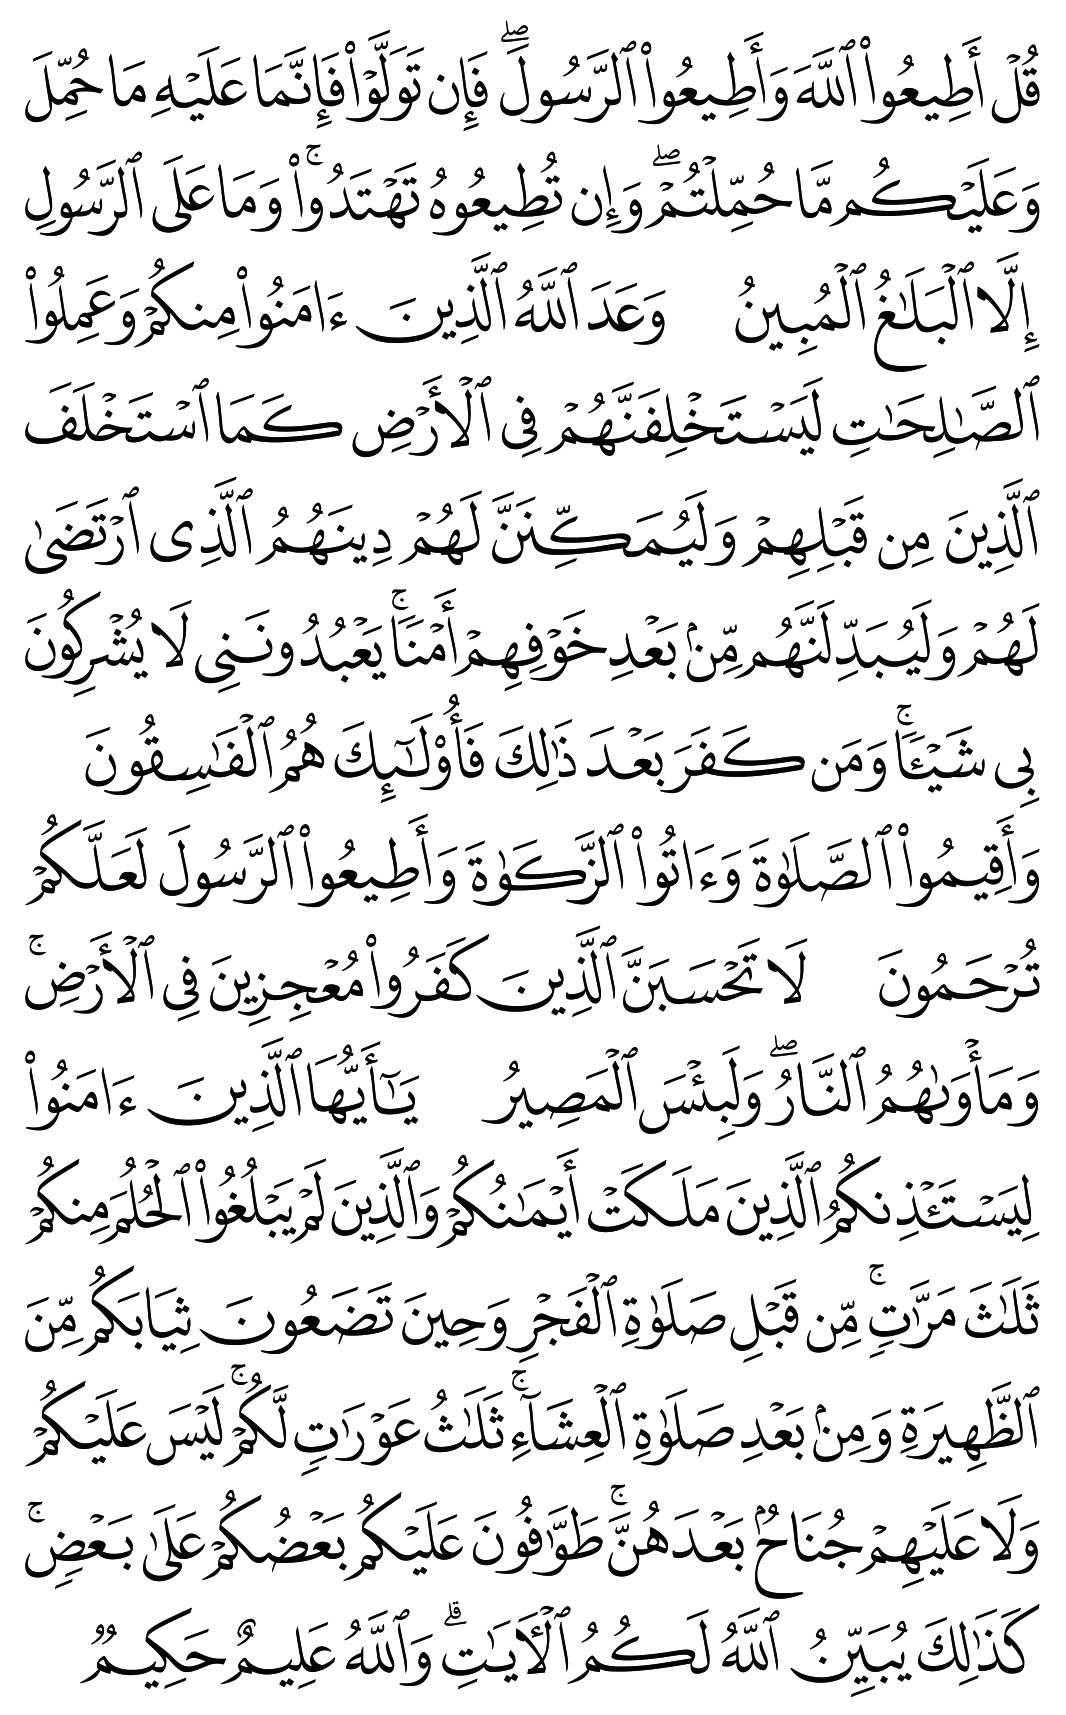 قُلۡ أَطِيعُواْ ٱللَّهَ وَأَطِيعُواْ ٱلرَّسُولَۖ فَإِن تَوَلَّوۡاْ فَإِنَّمَا عَلَيۡهِ مَا حُمِّلَ
وَعَلَيۡكُم مَّا حُمِّلۡتُمۡۖ وَإِن تُطِيعُوهُ تَهۡتَدُواْۚ وَمَا عَلَى ٱلرَّسُولِ
إِلَّا ٱلۡبَلَٰغُ ٱلۡمُبِينُ وَعَدَ ٱللَّهُ ٱلَّذِينَ ءَامَنُواْ مِنكُمۡ وَعَمِلُواْ
ٱلصَّٰلِحَٰتِ لَيَسۡتَخۡلِفَنَّهُمۡ فِي ٱلۡأَرۡضِ كَمَا ٱسۡتَخۡلَفَ
ٱلَّذِينَ مِن قَبۡلِهِمۡ وَلَيُمَكِّنَنَّ لَهُمۡ دِينَهُمُ ٱلَّذِي ٱرۡتَضَىٰ
لَهُمۡ وَلَيُبَدِّلَنَّهُم مِّنۢ بَعۡدِ خَوۡفِهِمۡ أَمۡنٗاۚ يَعۡبُدُونَنِي لَا يُشۡرِكُونَ
بِي شَيۡـٔٗاۚ وَمَن كَفَرَ بَعۡدَ ذَٰلِكَ فَأُوْلَٰٓئِكَ هُمُ ٱلۡفَٰسِقُونَ
وَأَقِيمُواْ ٱلصَّلَوٰةَ وَءَاتُواْ ٱلزَّكَوٰةَ وَأَطِيعُواْ ٱلرَّسُولَ لَعَلَّكُمۡ
تُرۡحَمُونَ لَا تَحۡسَبَنَّ ٱلَّذِينَ كَفَرُواْ مُعۡجِزِينَ فِي ٱلۡأَرۡضِۚ
وَمَأۡوَىٰهُمُ ٱلنَّارُۖ وَلَبِئۡسَ ٱلۡمَصِيرُ يَٰٓأَيُّهَا ٱلَّذِينَ ءَامَنُواْ
لِيَسۡتَـٔۡذِنكُمُ ٱلَّذِينَ مَلَكَتۡ أَيۡمَٰنُكُمۡ وَٱلَّذِينَ لَمۡ يَبۡلُغُواْ ٱلۡحُلُمَ مِنكُمۡ
ثَلَٰثَ مَرَّٰتٖۚ مِّن قَبۡلِ صَلَوٰةِ ٱلۡفَجۡرِ وَحِينَ تَضَعُونَ ثِيَابَكُم مِّنَ
ٱلظَّهِيرَةِ وَمِنۢ بَعۡدِ صَلَوٰةِ ٱلۡعِشَآءِۚ ثَلَٰثُ عَوۡرَٰتٖ لَّكُمۡۚ لَيۡسَ عَلَيۡكُمۡ
وَلَا عَلَيۡهِمۡ جُنَاحُۢ بَعۡدَهُنَّۚ طَوَّٰفُونَ عَلَيۡكُم بَعۡضُكُمۡ عَلَىٰ بَعۡضٖۚ
كَذَٰلِكَ يُبَيِّنُ ٱللَّهُ لَكُمُ ٱلۡأٓيَٰتِۗ وَٱللَّهُ عَلِيمٌ حَكِيمٞ